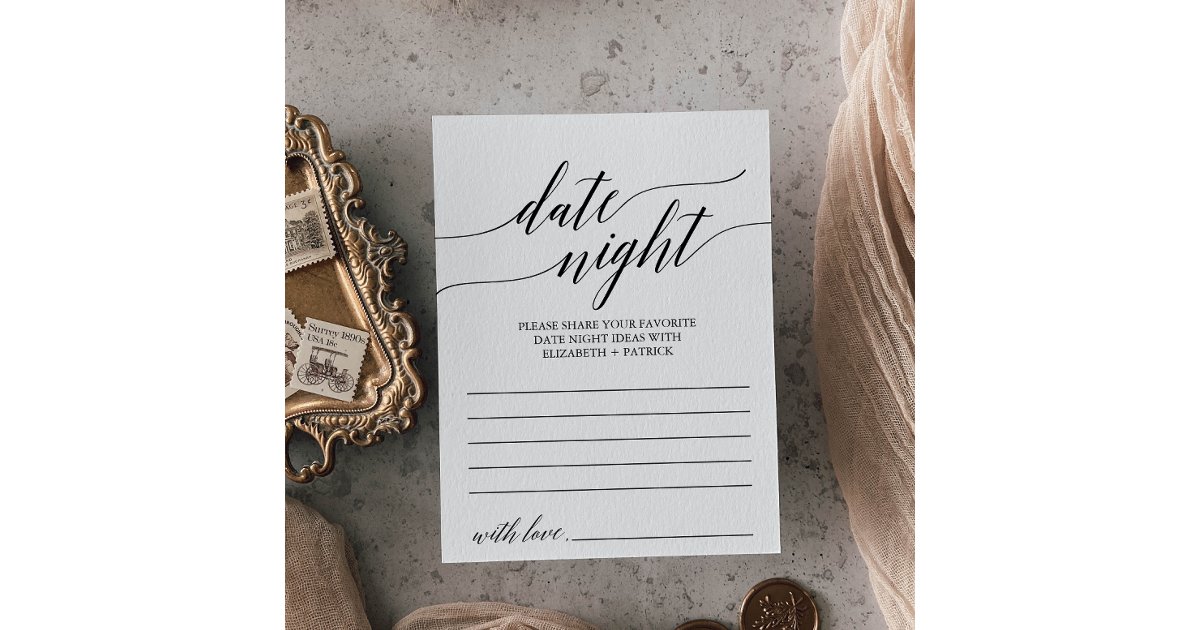 date
night
PLEASE SHARE YOUR FAVORITE
DATE NIGHT IDEAS WITH
ELIZABETH + PATRICK
with love,
AGE 3¢
Surrey 1890s
USA 18c